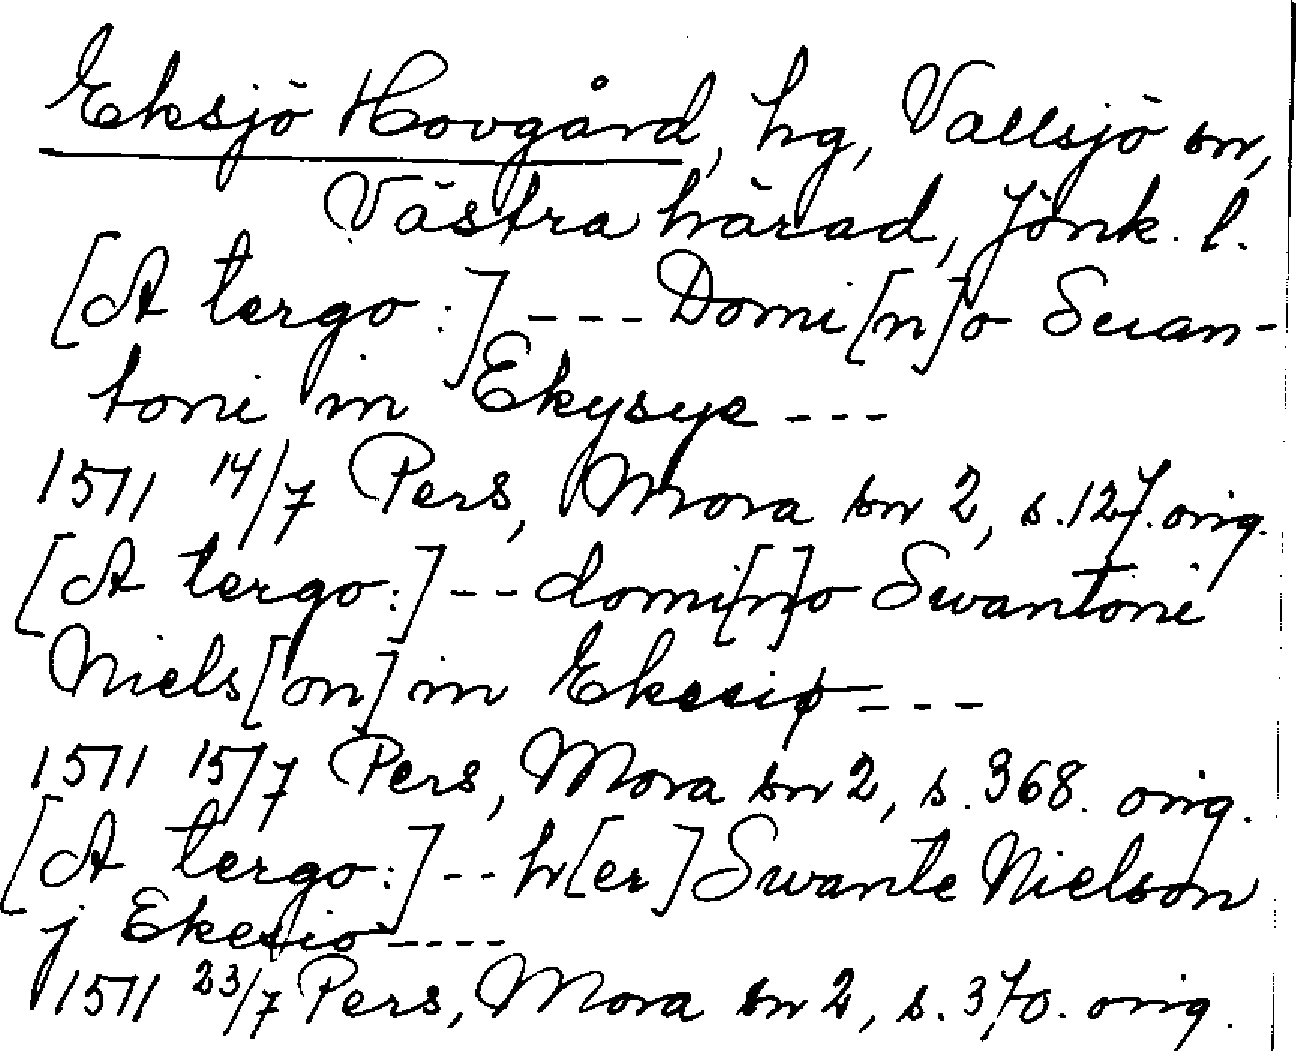 Eksjö Hovgård, hg, Vallsjö sn,
Västra härad, Jönk. l.
[A tergo:] --- Domi[n]o Suan-
toni in Ekysye ---
1511 14/7 Pers, Mora sn 2, s. 127. orig.
[A tergo:] -- domi[n]o Swantoni
Niels[on] in Ekesiø ---
1511 15/7 Pers, Mora sn 2, s. 368. orig.
[A tergo:] -- h[er] Swante Nielson
j Ekesiö ----
1511 23/7 Pers, Mora sn 2, s. 370. orig.